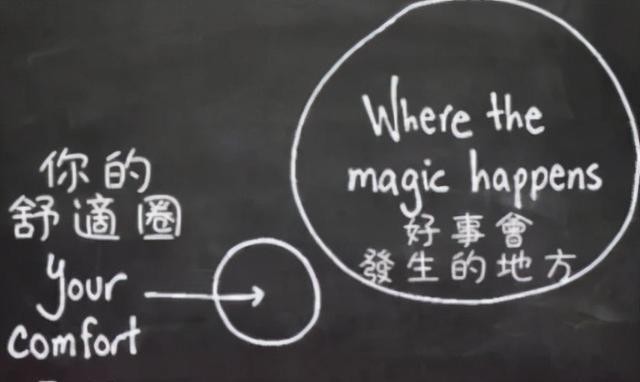 Where the
magic happens
好事會
發生的地方
你的
舒適圈
Your
comfort